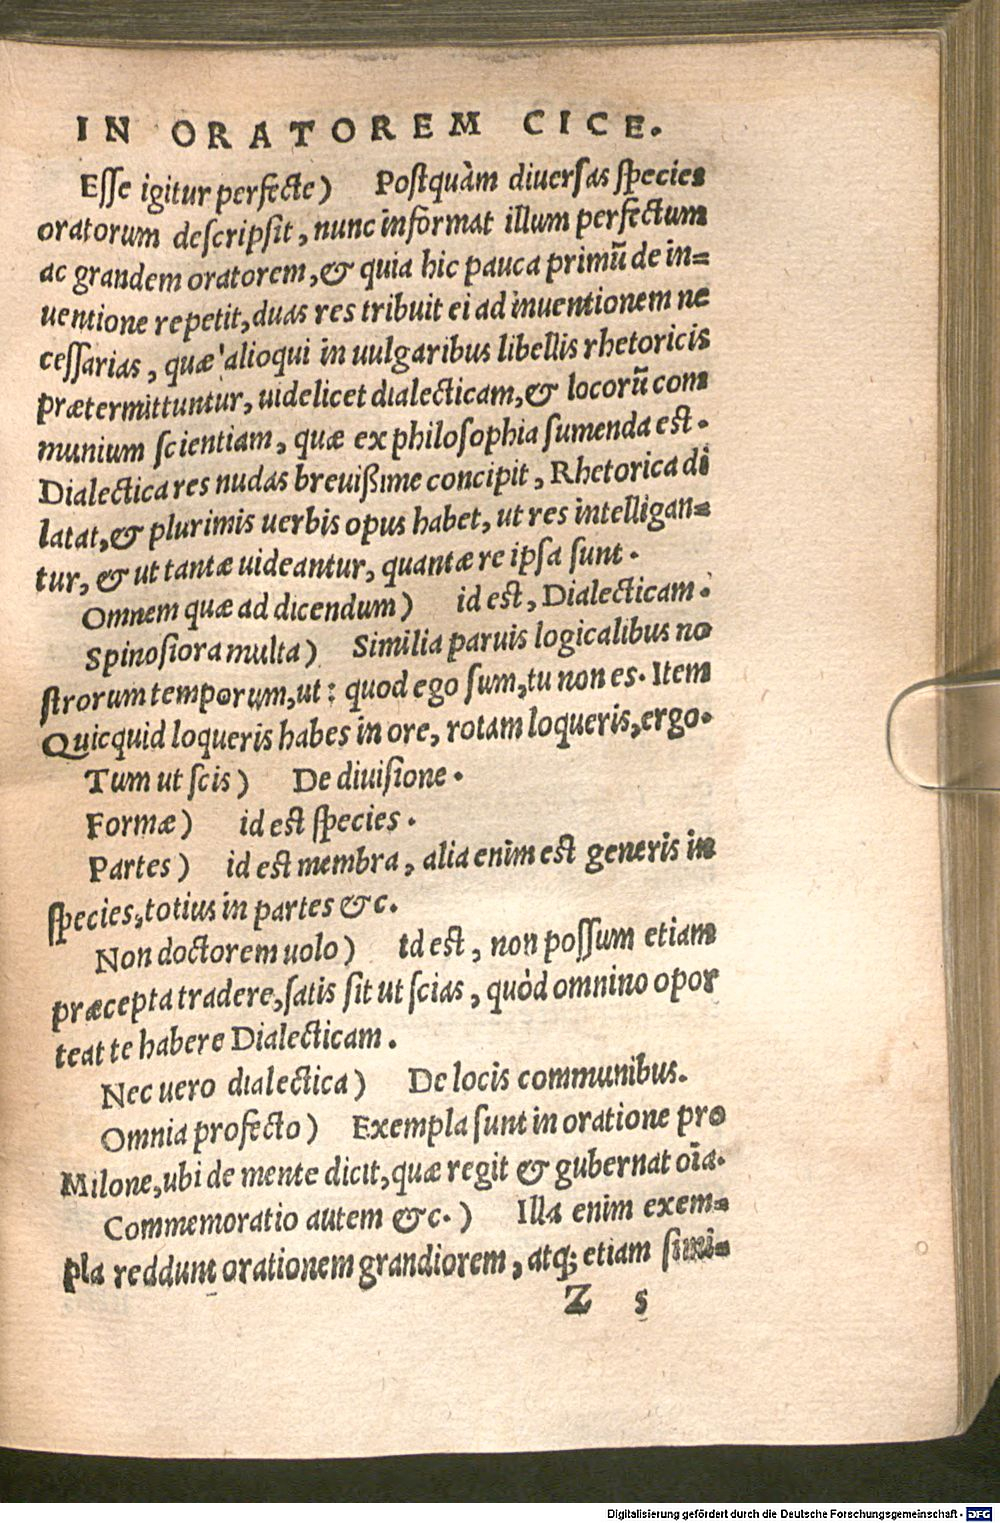 IN ORATOREM CICE.
Esse igitur perfecte) Postquàm diuersas species
oratorum descripsit, nunc informat illum perfectum
ac grandem oratorem, & quia hic pauca primū de in=
uentione repetit, duas res tribuit ei ad inuentionem ne
cessarias, quæ alioqui in uulgaribus libellis rhetoricis
prætermittuntur, uidelicet dialecticam, & locorū com
munium scientiam, quæ ex philosophia sumenda est.
Dialectica res nudas breuißime concipit, Rhetorica di
latat, & plurimis uerbis opus habet, ut res intelligan=
tur, & ut tantæ uideantur, quantæ re ipsa sunt.
Omnem quæ ad dicendum) id est, Dialecticam.
Spinosiora multa) Similia paruis logicalibus no
strorum temporum, ut: quod ego sum, tu non es. Item
Quicquid loqueris habes in ore, rotam loqueris, ergo.
Tum ut scis) De diuisione.
Formæ) id est species.
Partes) id est membra, alia enim est generis in
species, totius in partes &c.
Non doctorem uolo) Id est, non possum etiam
præcepta tradere, satis sit ut scias, quòd omnino opor
teat te habere Dialecticam.
Nec uero dialectica) De locis communibus.
Omnia profecto) Exempla sunt in oratione pro
Milone, ubi de mente dicit, quæ regit & gubernat oīa.
Commemoratio autem &c.) Illa enim exem=
pla reddunt orationem grandiorem, atq; etiam simi=
Z 5
Digitalisierung gefördert durch die Deutsche Forschungsgemeinschaft - DFG